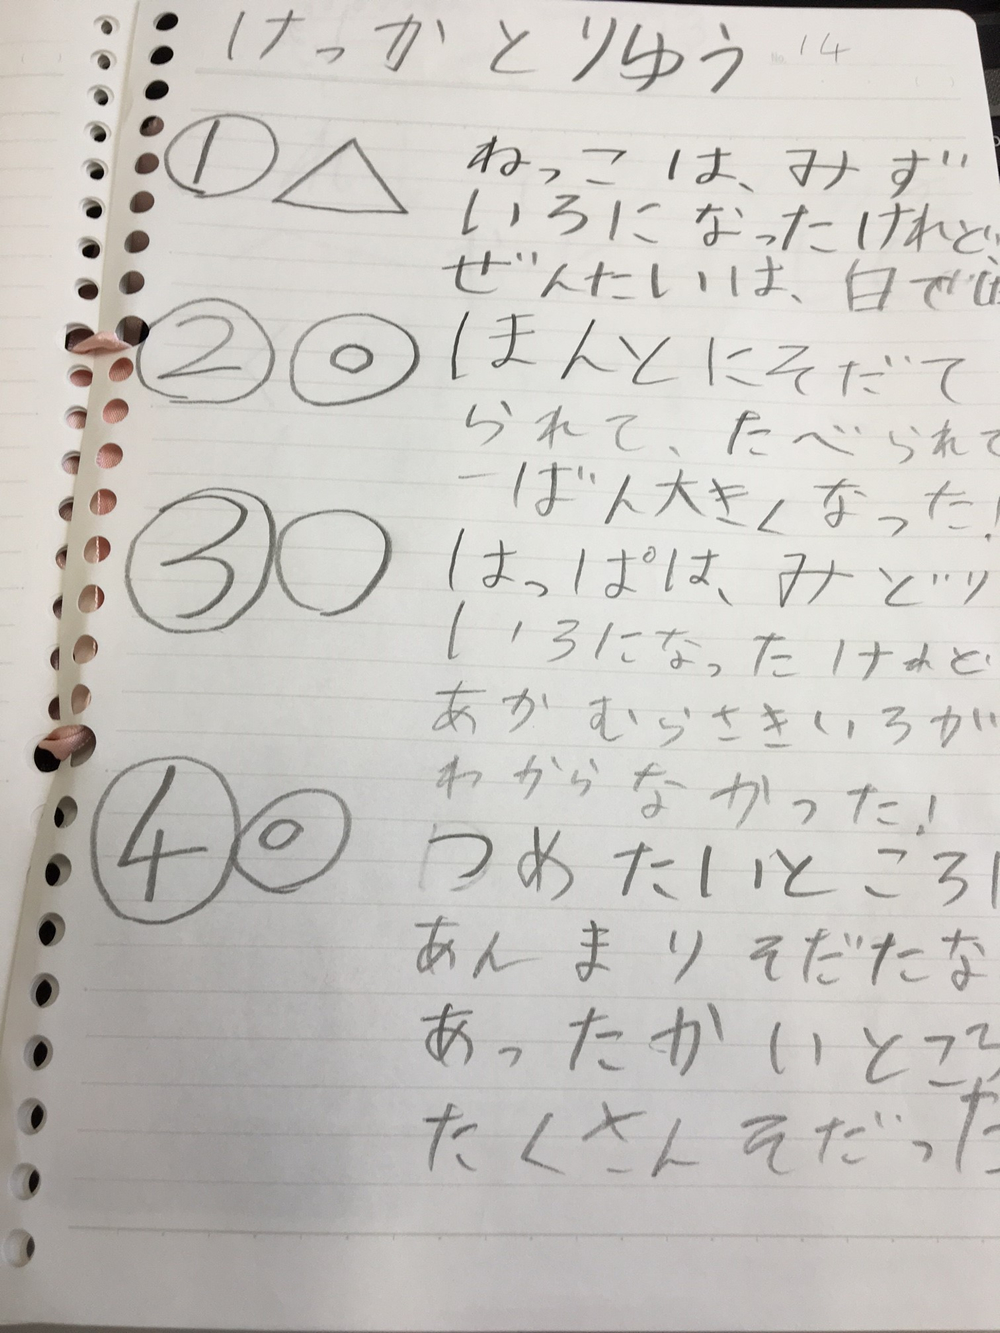 けっかとりゅう No. 14
① △ ねっこは、みず
いろになったけれど、
ぜんたいは、白で
② ◎ ほんとにそだて
られて、たべられて
一ばん大きくなった!
③ ○ はっぱは、みどり
いろになったけれど
あかむらさきいろが
わからなかった!
④ ◎ つめたいところ
あんまりそだたな
あったかいところ
たくさんそだった